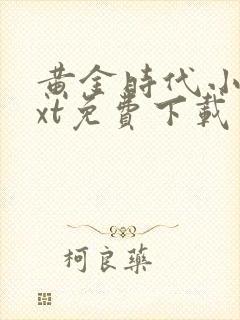 黃金時代.小
xt免費下載
柯良藥